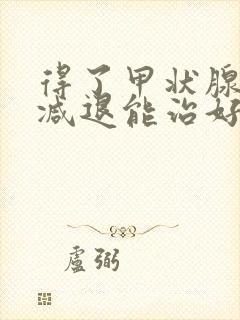 得了甲状腺
减退能治好
盧弼